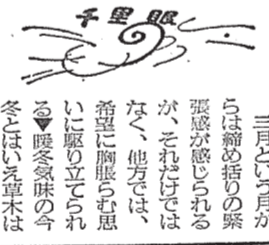 千里眼
三月という月か
らは締め括りの緊
張感が感じられる
が、それだけでは
なく、他方では、
希望に胸脹らむ思
いに駆り立てられ
る▼暖冬気味の今
冬とはいえ草木は